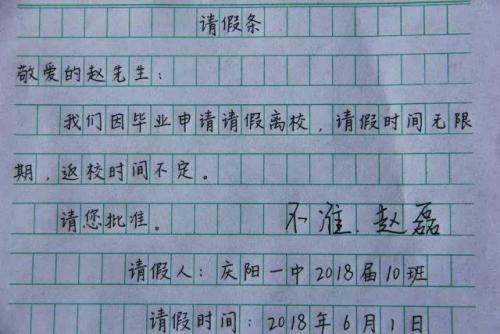 请假条
敬爱的赵先生：
我们因毕业申请请假离校，请假时间无限
期，返校时间不定。
请您批准。 不准，赵磊
请假人：庆阳一中2018届10班
请假时间：2018年6月1日